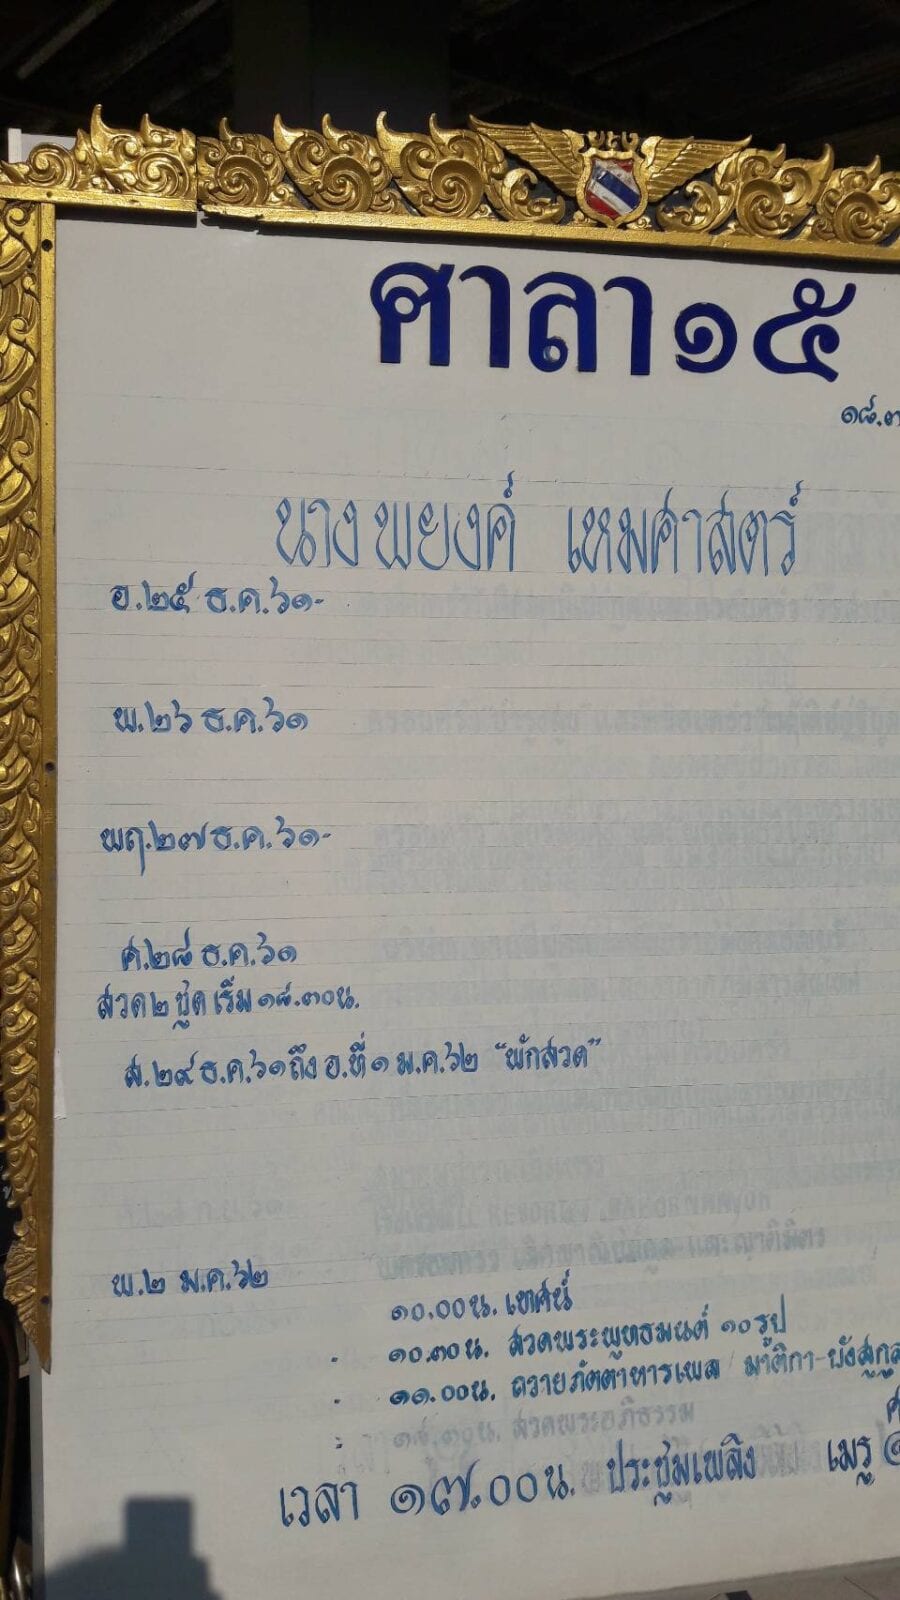 ศาลา๑๕
นางพยงค์ เหมศาสตร์
อ.๒๕ ธ.ค.๖๑-
พ.๒๖ ธ.ค.๖๑
พฤ.๒๗ ธ.ค.๖๑-
ศ.๒๘ ธ.ค.๖๑
สวด๒ ชุดเริ่ม๑๘.๓๐น.
ส.๒๙ ธ.ค.๖๑ถึง อ.ที่๑ ม.ค.๖๒ "พักสวด"
พ.๒ ม.ค.๖๒
๑๐.๐๐น. เทศน์
๑๐.๓๐น. สวดพระพุทธมนต์ ๑๐รูป
๑๑.๐๐น. ถวายภัตตาหารเพล มาติกา-บังสุกุล
เวลา ๑๗.๐๐น. ประชุมเพลิง เมรุ